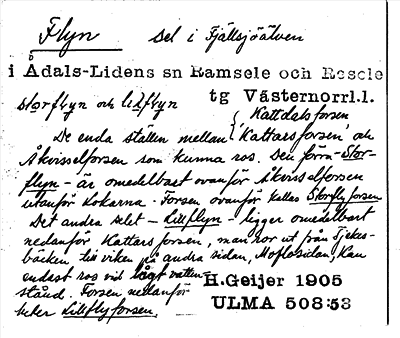 Flyn sel i Fjällsjöälven
i Ådals-Lidens sn Ramsele och Resele
tg Västernorrl.l.
storflyn och lillflyn
Kattdalsforsen
De enda ställen mellan Kattarsforsen och
Åkvisselforsen som kunna ros. Den förra - Stor-
flyn - är omedelbart ovanför Åkvisselforsen
utanför Lokarna. Forsen ovanför kallas Storflyforsen
Det andra selet - Lillflyn - ligger omedelbart
nedanför Kattarsforsen, man ror ut från
bäcken till viken på andra sidan, Moflosidan, kan
endast ros vid lågt vatten-
stånd. Forsen nedanför
heter Lillflyforsen.
H.Geijer 1905
ULMA 508:53